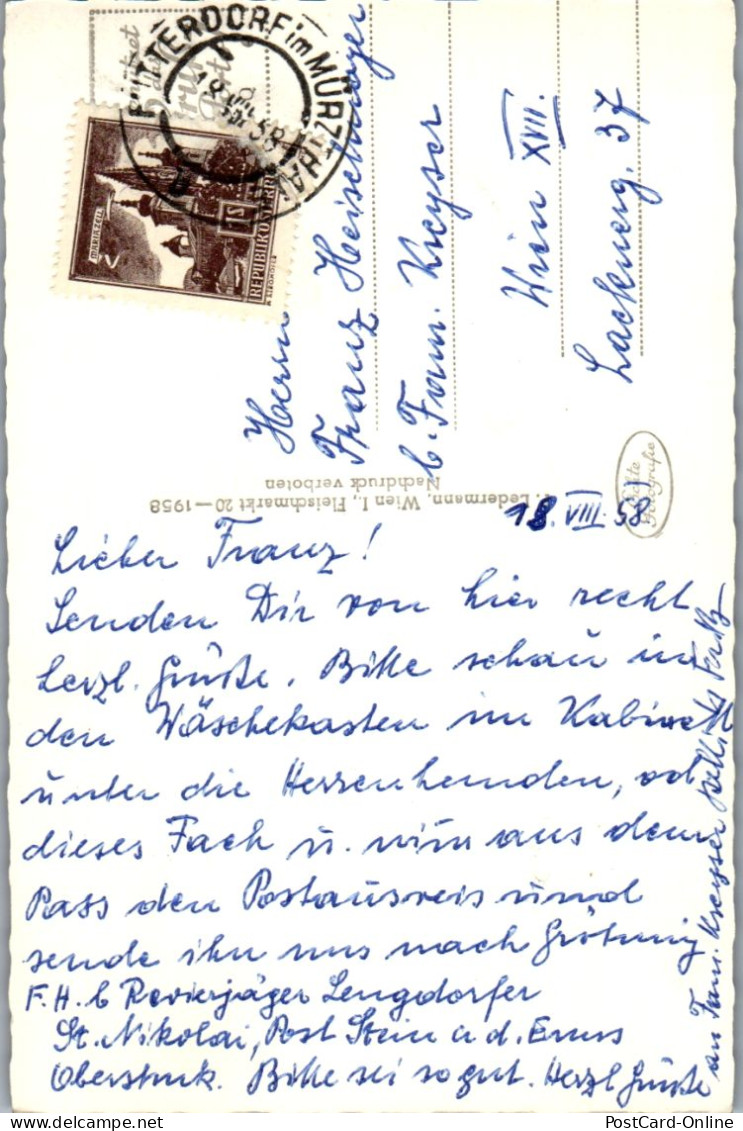 MITTERDORF im MÜRZTHAL
MARIAZELL
1S
REPUBLIK ÖSTERREICH
Herrn
Franz Heiselmayer
b. Fam. Kreyser
Wien XVII.
Lacknerg. 37
Ledermann, Wien I., Fleischmarkt 20—1958
Nachdruck verboten
Echte Fotografie
18. VIII. 58
Lieber Franz!
Senden Dir von hier recht
herzl. Grüße. Bitte schau in
den Wäschekasten im Kabinett
unter die Herrenhemden, od.
dieses Fach u. nim aus dem
Pass den Postausweis und
sende ihn uns nach Gröbming
F.H. b Revierjäger Lengdorfer
St. Nikolai, Post Stein a. d. Enns
Oberstmk. Bitte sei so gut. Herzl Grüße
an Fam. Kreyser
PostCard-Online